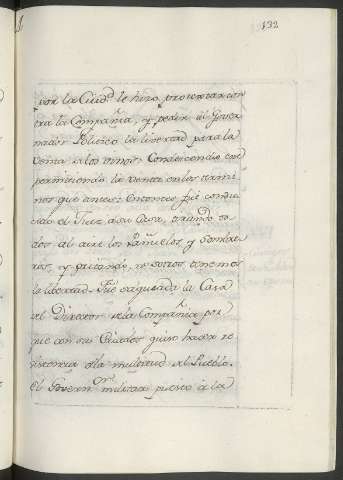 132
por la Ciud.d le hizo protextar con
tra la Compañia, y pedir al Gover
nador Politico la libertad para la
venta de los vinos: Condescendio este
permitiendo la venta en los termi
nos que antes: Entonces fué condu
cido el Juez a su Casa, tirando to
dos al aire los Pañuelos, y Sombre
ros, y gritando, nosotros tenemos
la libertad. Fue saqueada la Casa
del Director de la Compañia por
que con sus Criados quiso hacer re
sistencia a la multitud del Pueblo.
El Governor militar puesto a la